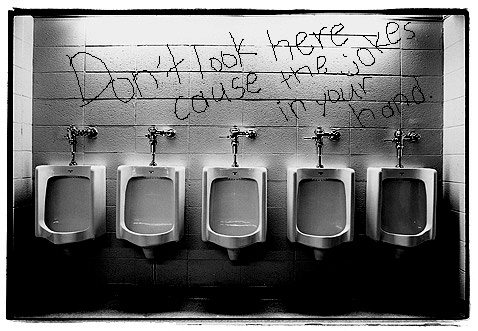 Don't look here
cause the jokes
in your
hand.